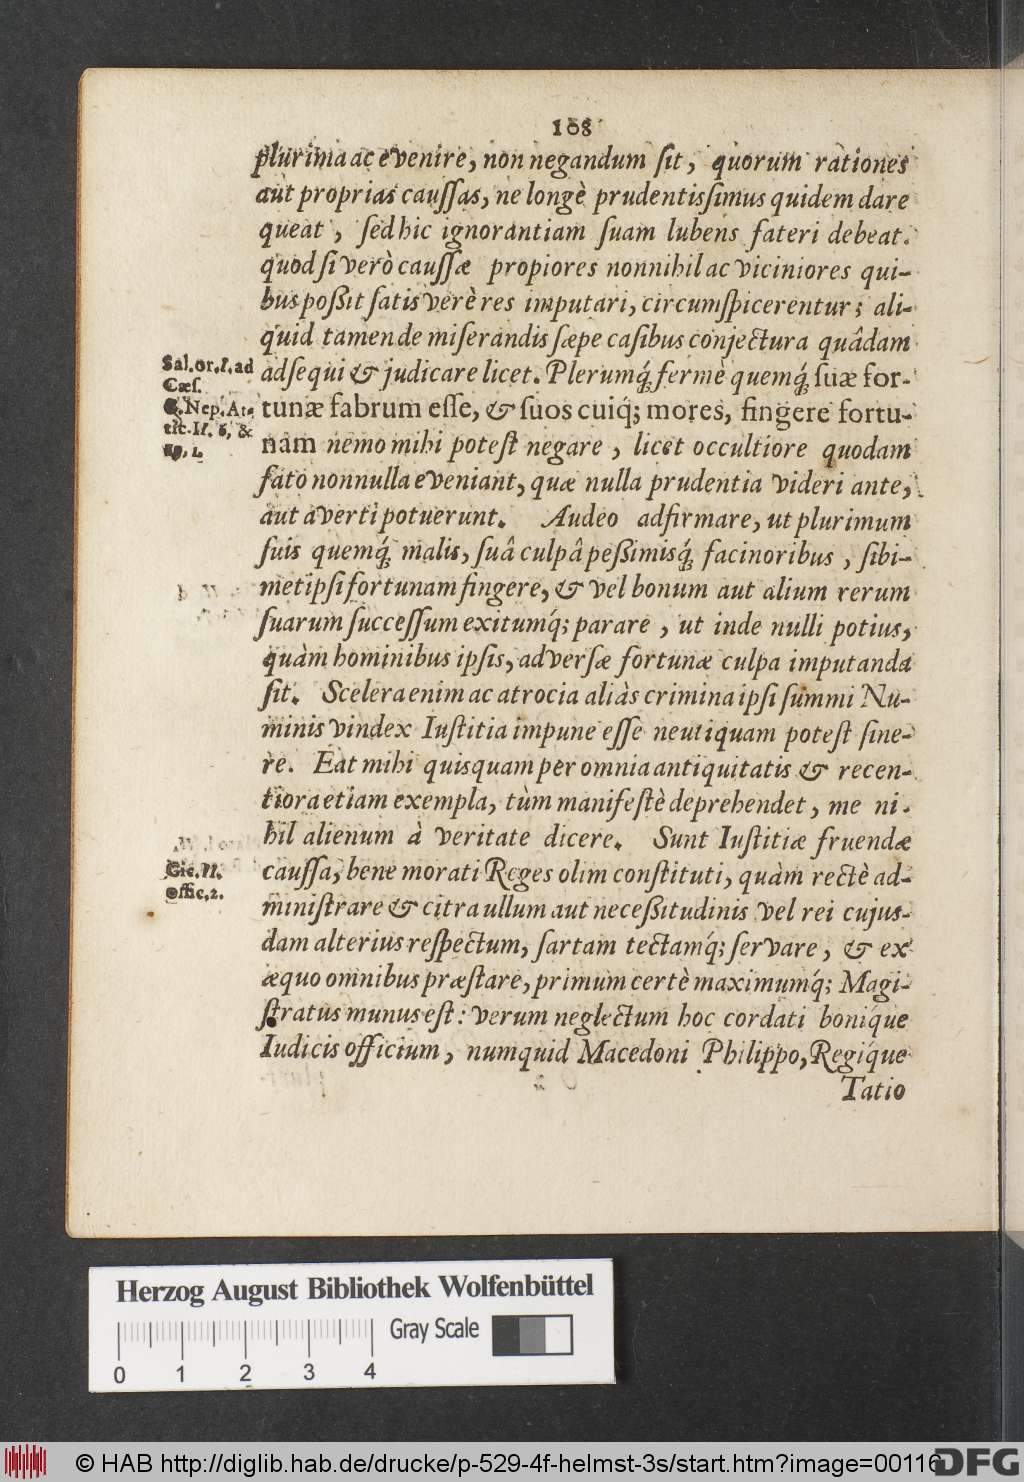 108
plurima ac evenire, non negandum ſit, quorum rationes
aut proprias cauſſas, ne longè prudentisſimus quidem dare
queat, ſed hic ignorantiam ſuam lubens fateri debeat.
quod ſi verò cauſſæ propiores nonnihil ac viciniores qui-
bus poßit ſatis verè res imputari, circumſpicerentur; ali-
quid tamen de miſerandis ſæpe caſibus conjectura quâdam
Sal. or. I. ad
Cæſ.
C. Nep. At-
tic. II. 6, &
19, 1.
adſequi & judicare licet. Plerumq́; fermè quemq́; ſuæ for-
tunæ fabrum eſſe, & ſuos cuiq́; mores, fingere fortu-
nam nemo mihi poteſt negare, licet occultiore quodam
fato nonnulla eveniant, quæ nulla prudentia videri ante,
aut averti potuerunt. Audeo adfirmare, ut plurimum
ſuis quemq́; malis, ſuâ culpâ peßimisq́; facinoribus, ſibi-
metipſi fortunam fingere, & vel bonum aut alium rerum
ſuarum ſucceſſum exitumq́; parare, ut inde nulli potius,
quàm hominibus ipſis, adverſæ fortunæ culpa imputanda
ſit. Scelera enim ac atrocia aliàs crimina ipſi ſummi Nu-
minis vindex Iuſtitia impune eſſe neutiquam poteſt ſine-
re. Eat mihi quisquam per omnia antiquitatis & recen-
tiora etiam exempla, tùm manifeſtè deprehendet, me ni-
hil alienum à veritate dicere. Sunt Iuſtitiæ fruendæ
Cic. II.
Offic. 2.
cauſſa, bene morati Reges olim conſtituti, quàm rectè ad-
miniſtrare & citra ullum aut neceßitudinis vel rei cujus-
dam alterius reſpectum, ſartam tectamq́; ſervare, & ex
æquo omnibus præſtare, primum certè maximumq́; Magi-
ſtratus munus eſt: verum neglectum hoc cordati boníque
Iudicis officium, numquid Macedoni Philippo, Regíque
Tatio
Herzog August Bibliothek Wolfenbüttel
0 1 2 3 4
Gray Scale
© HAB http://diglib.hab.de/drucke/p-529-4f-helmst-3s/start.htm?image=00116
DFG